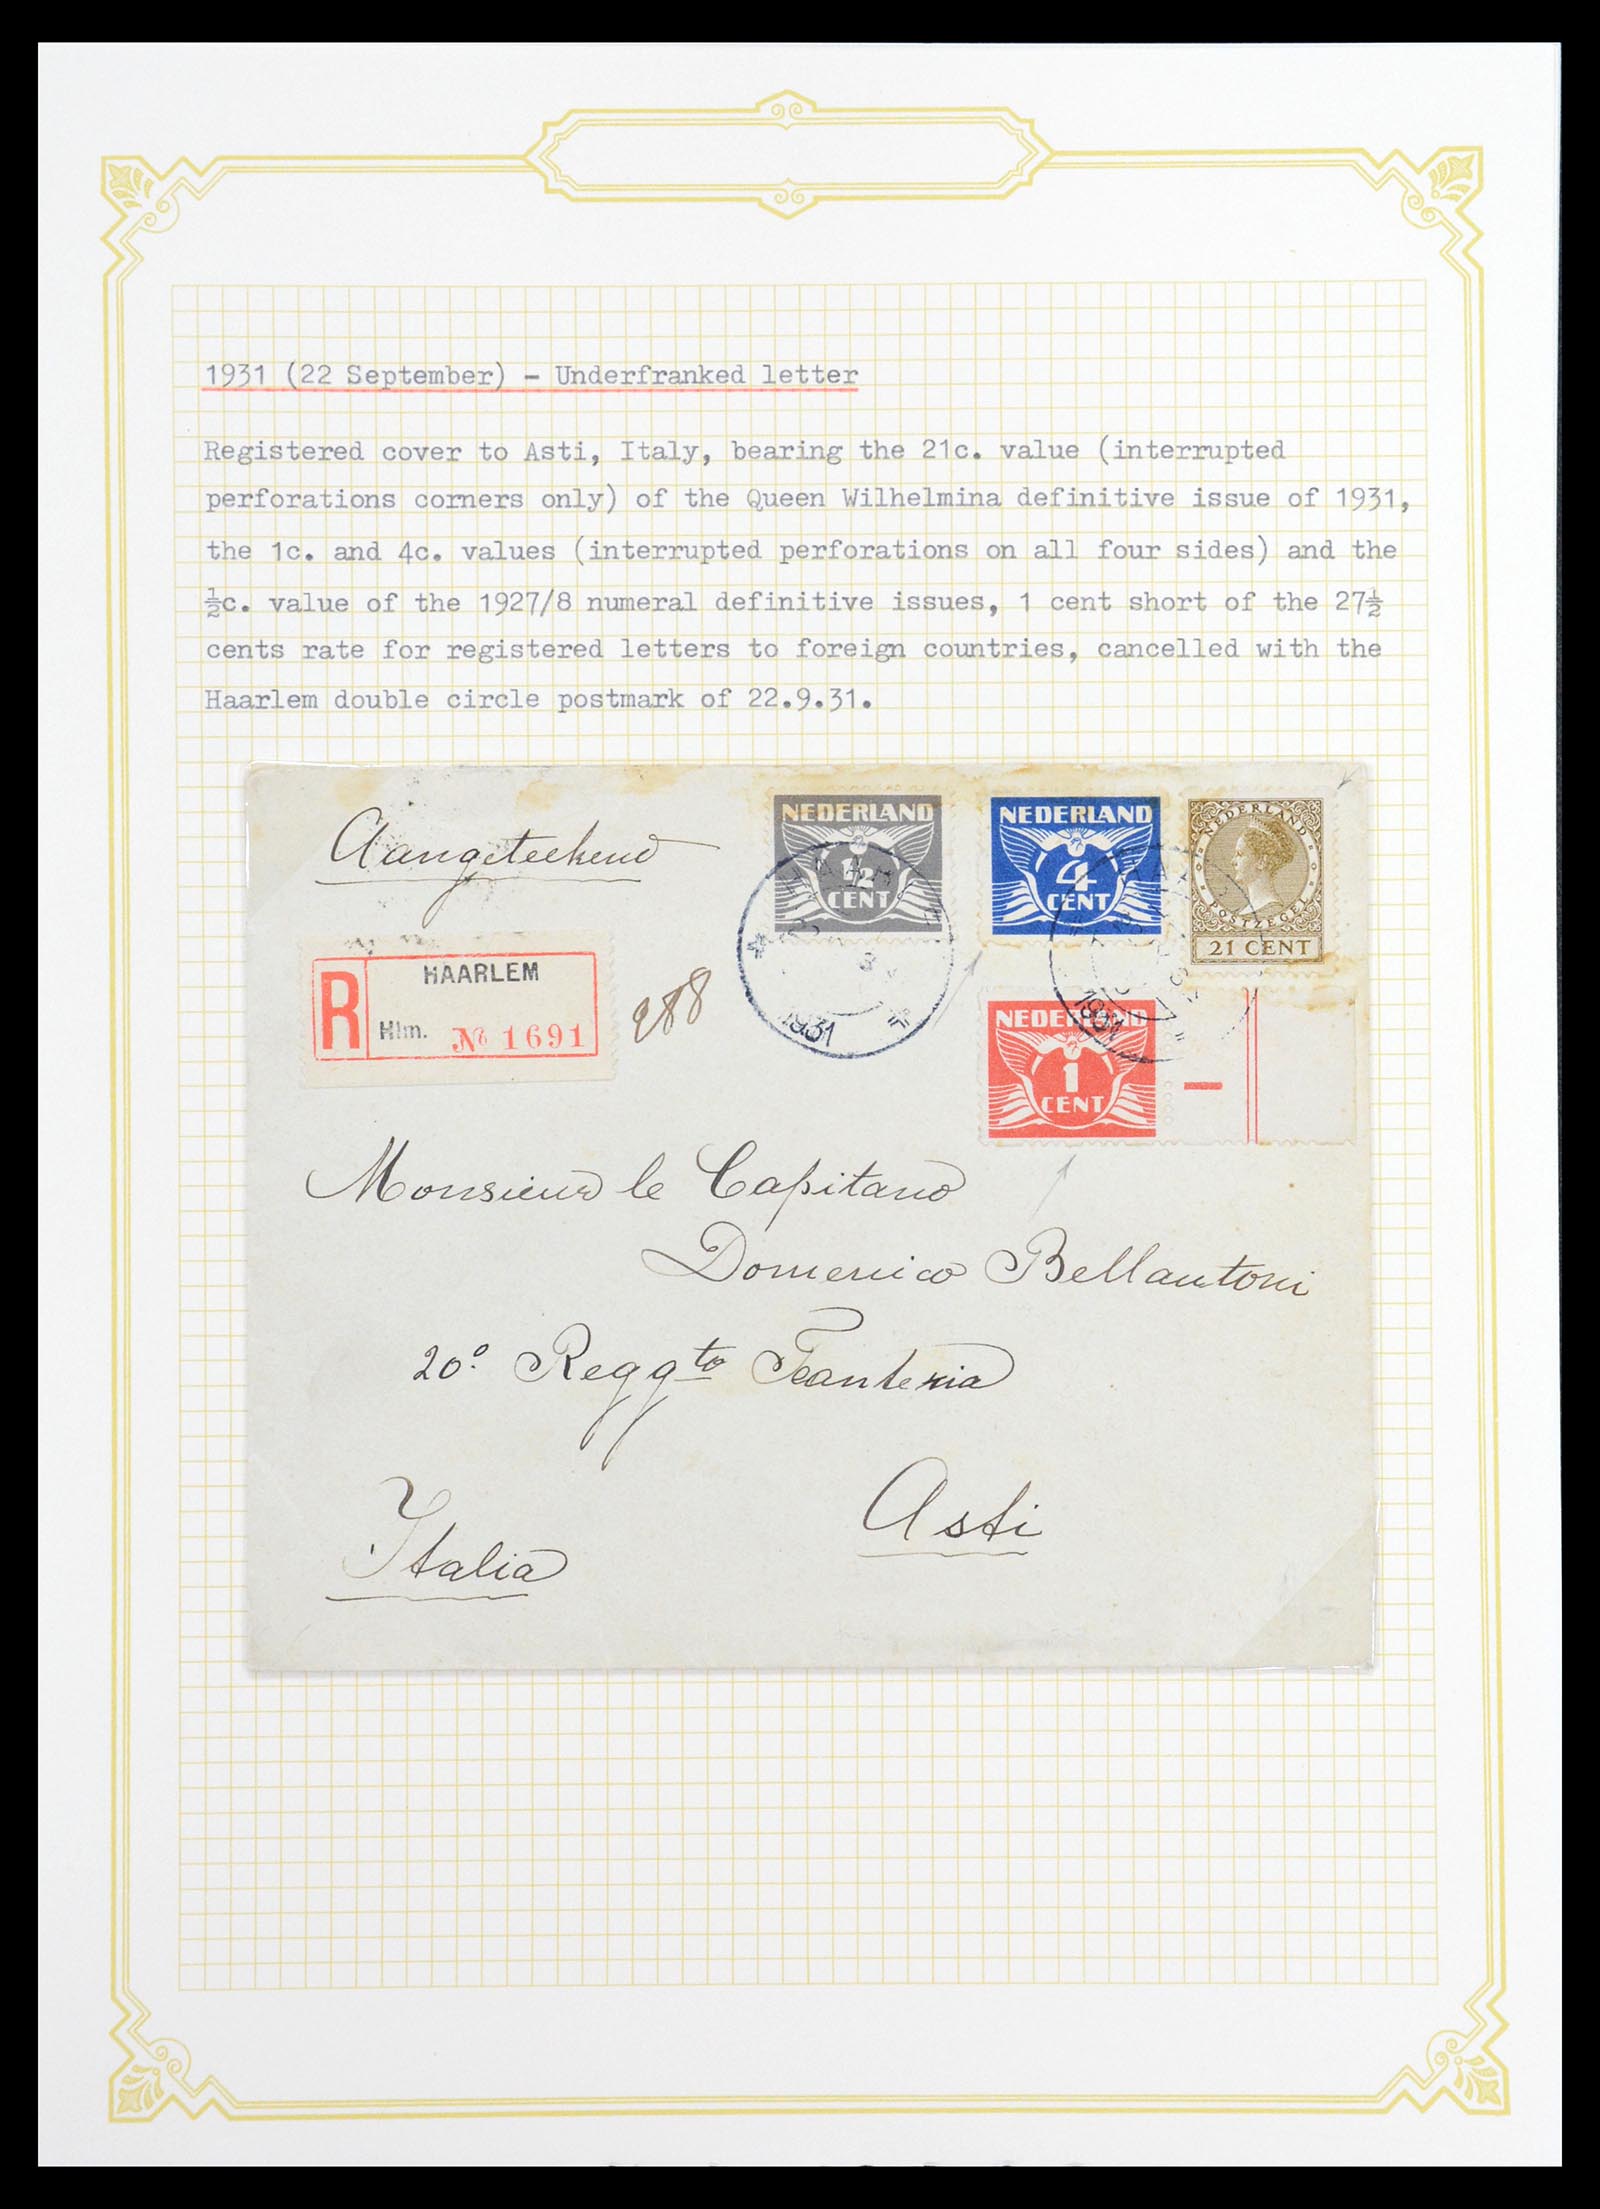 1931 (22 September) - Underfranked letter
Registered cover to Asti, Italy, bearing the 21c. value (interrupted
perforations corners only) of the Queen Wilhelmina definitive issue of 1931,
the 1c. and 4c. values (interrupted perforations on all four sides) and the
½c. value of the 1927/8 numeral definitive issues, 1 cent short of the 27½
cents rate for registered letters to foreign countries, cancelled with the
Haarlem double circle postmark of 22.9.31.
Aangeteekend
NEDERLAND
½
CENT
NEDERLAND
4
CENT
NEDERLAND
POSTZEGEL
21 CENT
R
HAARLEM
Hlm. No 1691
288
1931
1931
NEDERLAND
1
CENT
Monsieur le Capitano
Domenico Bellantoni
20º Reggto Fanteria
Asti
Italia